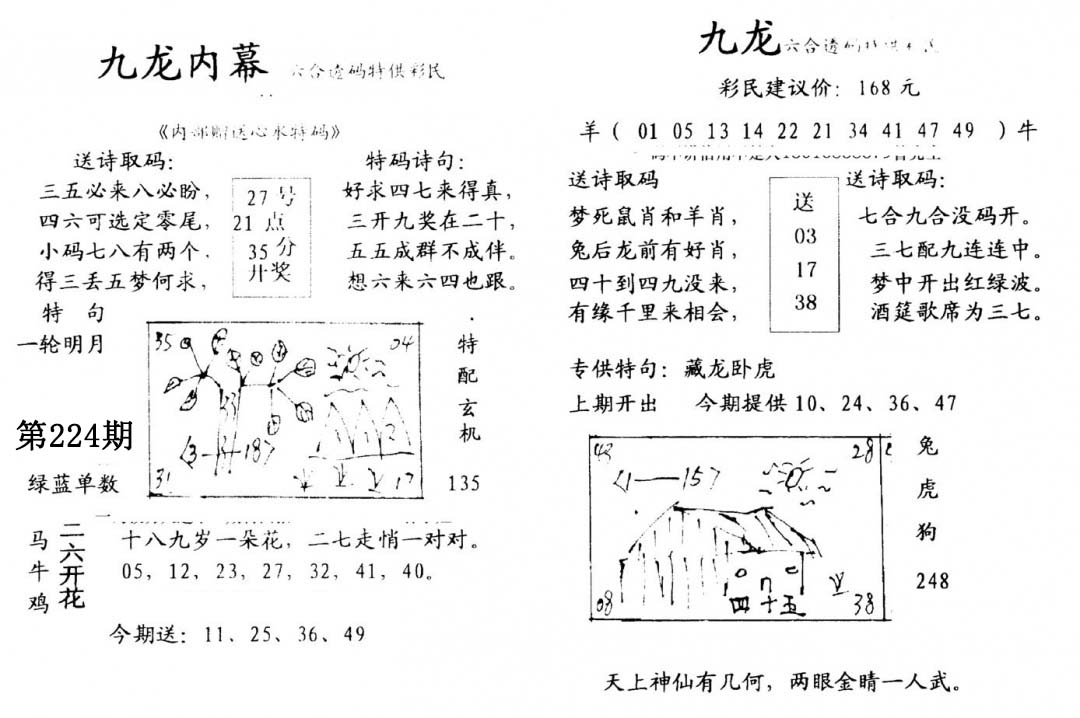 九龙内幕 六合透码特供彩民
《内部赠送心水特码》
送诗取码：
三五必来八必盼，
四六可选定零尾，
小码七八有两个．
得三丢五梦何求，
27号
21点
35分
开奖
特码诗句：
好求四七来得真，
三开九奖在二十，
五五成群不成伴。
想六来六四也跟。
特 句
一轮明月
第224期
绿蓝单数
35 04
33
1 1 2
〈3—187
31 17
特
配
玄
机
135
马
牛
鸡
二六开花
十八九岁一朵花，二七走悄一对对。
05，12，23，27，32，41，40。
今期送：11、25、36、49
九龙 六合透码特供
彩民建议价：168元
羊（ 01 05 13 14 22 21 34 41 47 49 ）牛
送诗取码
梦死鼠肖和羊肖，
兔后龙前有好肖，
四十到四九没来，
有缘千里来相会，
送
03
17
38
送诗取码：
七合九合没码开。
三七配九连连中。
梦中开出红绿波。
酒筵歌席为三七。
专供特句：藏龙卧虎
上期开出 今期提供10、24、36、47
28
〈1—157
08 四十五 38
兔
虎
狗
248
天上神仙有几何，两眼金睛一人武。